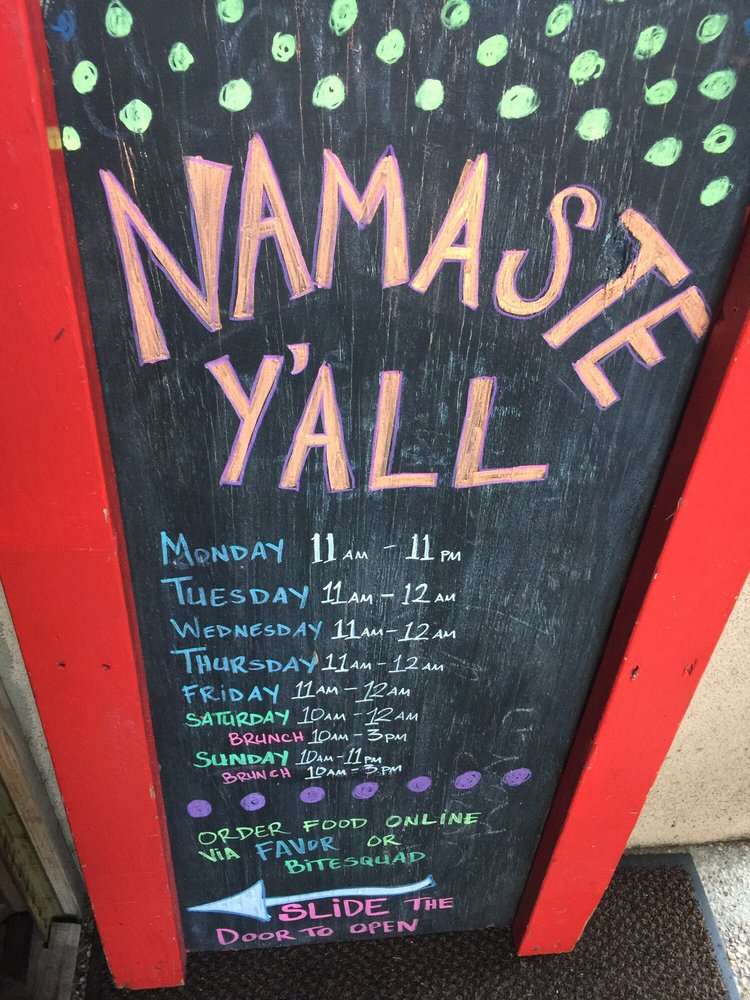 NAMASTE
Y'ALL
MONDAY 11 AM - 11 PM
TUESDAY 11 AM - 12 AM
WEDNESDAY 11 AM - 12 AM
THURSDAY 11 AM - 12 AM
FRIDAY 11 AM - 12 AM
SATURDAY 10 AM - 12 AM
BRUNCH 10 AM - 3 PM
SUNDAY 10 AM - 11 PM
BRUNCH 10 AM - 3 PM
ORDER FOOD ONLINE
VIA FAVOR OR
BITESQUAD
SLIDE THE
DOOR TO OPEN